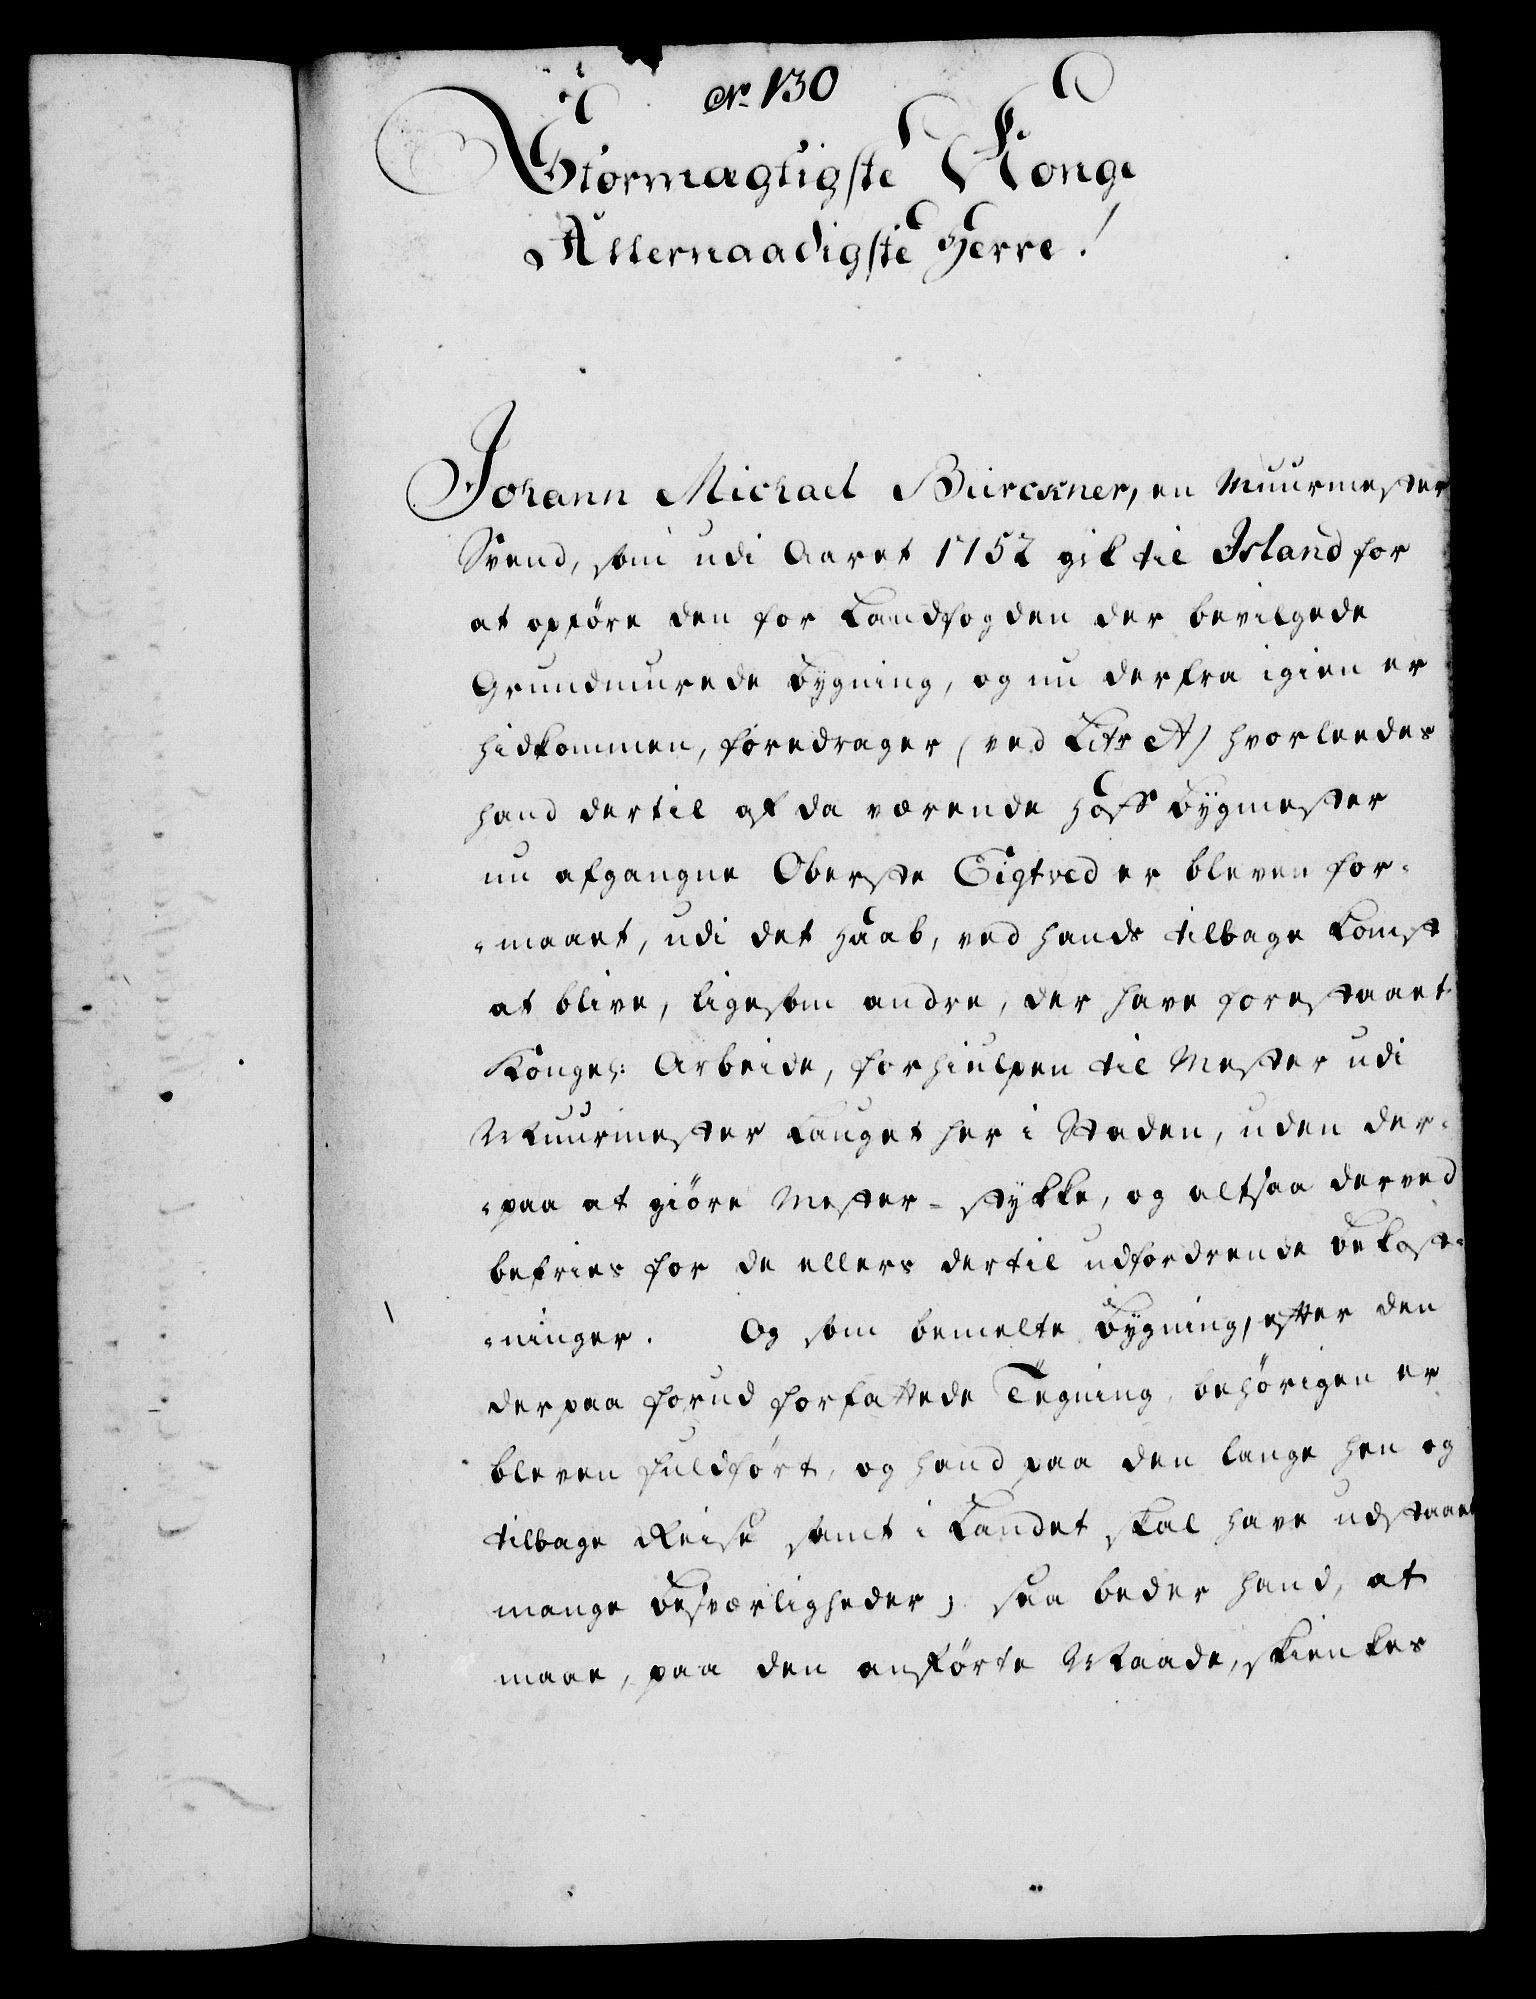 No. 130
Stormægtigste Konge
Allernaadigste Herre!
Johann Michael Büirckner, en Muurmester
Svend, som udi Aaret 1752 gik til Island for
at opføre den for Landfogden der bevilgede
Grundmurede Bygning, og nu derfra igien er
hidkommen, foredrager (ved Litr A) hvorleedes
hand dertil af da værende Hoff Bygmester
nu afgangne Oberste Eigtved er bleven for-
-maaet, udi det Haab, ved hands tilbage komst
at blive, ligesom andre, der have forestaaet
Kongel: Arbeide, forhiulpen til Mester udi
Muurmester Lauget her i Staden, uden der-
-paa at giöre Mester-stykke, og altsaa derved
befries for de ellers dertil udfordrende Bekost-
-ninger. Og som bemelte Bygning, efter den
derpaa forud forfattede Tegning, behörigen er
bleven fuldfört, og hand paa den lange hen og
tilbage Reise samt i Landet skal have udstaaet
mange Besværligheder; saa beder hand, at
maae, paa den anförte Maade, skienkes